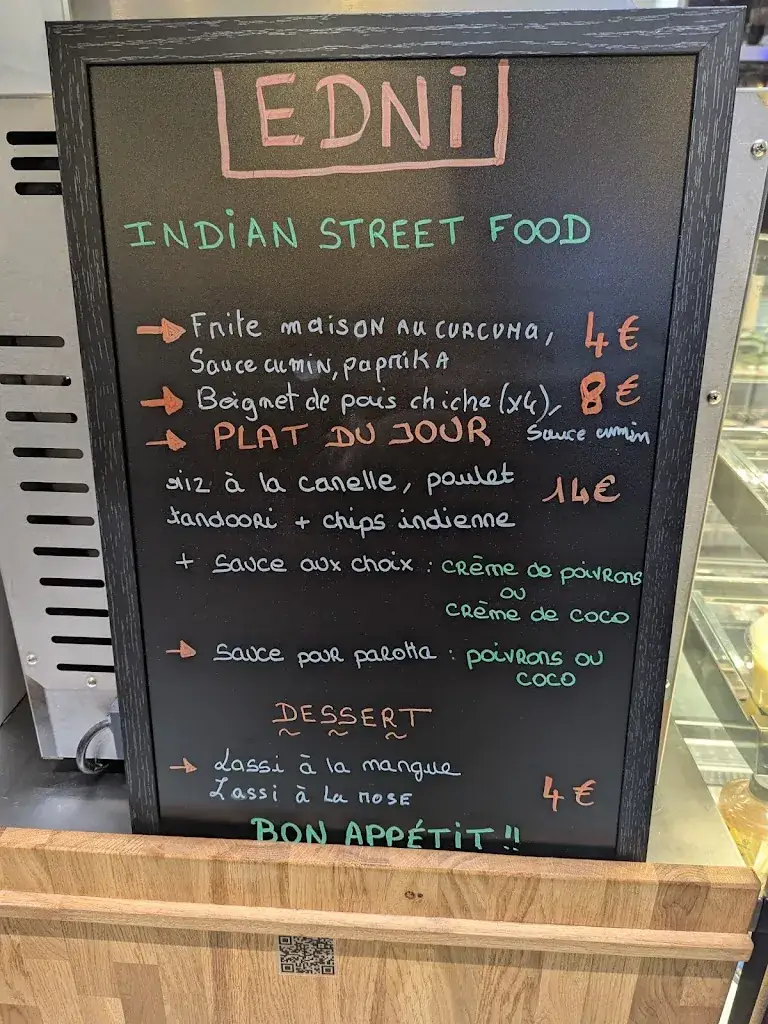 EDNi
INDiAN STREET FOOD
→ Frite maison AU CURCUMA, 4€
Sauce cumin, paprikA
→ Beignet de pois chiche (x4), 8€
Sauce cumin
→ PLAT DU JOUR
riz à la canelle, poulet 14€
tandoori + chips indienne
+ Sauce aux choix : CRÈME de poivRons
ou
CRÈME de COCO
→ Sauce pour parotta : poivRons ou
COCO
DESSERT
→ Lassi à la mangue
Lassi à La rose 4€
BON APPÉTiT !!